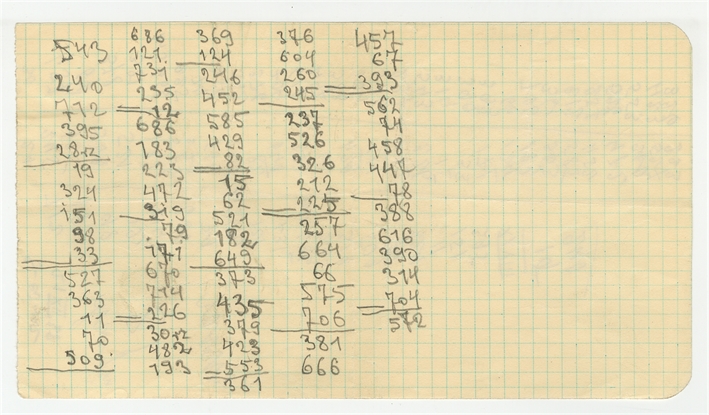 543
240
712
395
282
19
324
151
98
33
527
363
11
70
509
686
121
731
235
12
686
183
225
472
319
79
171
670
714
226
30
482
193
369
124
246
452
585
429
82
15
62
521
182
649
373
435
379
423
553
361
376
604
260
245
237
526
326
212
225
257
664
66
575
706
381
666
457
67
393
562
74
458
447
78
388
616
390
314
704
572